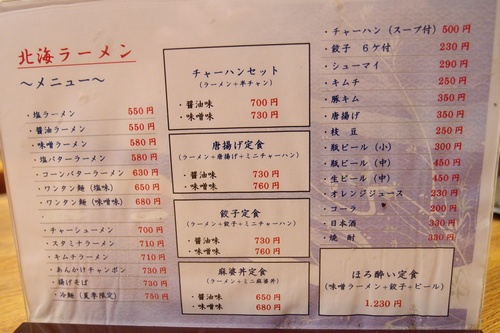 北海ラーメン
～メニュー～
・塩ラーメン 550円
・醤油ラーメン 550円
・味噌ラーメン 580円
・塩バターラーメン 580円
・コーンバターラーメン 630円
・ワンタン麺（塩味） 650円
・ワンタン麺（味噌味） 680円
・チャーシューメン 700円
・スタミナラーメン 710円
・キムチラーメン 710円
・あんかけチャンポン 730円
・揚げそば 730円
・冷麺（夏季限定） 750円
チャーハンセット
（ラーメン＋半チャン）
・醤油味 700円
・味噌味 730円
唐揚げ定食
（ラーメン＋唐揚げ＋ミニチャーハン）
・醤油味 730円
・味噌味 760円
餃子定食
（ラーメン＋餃子＋ミニチャーハン）
・醤油味 730円
・味噌味 760円
麻婆丼定食
（ラーメン＋ミニ麻婆丼）
・醤油味 650円
・味噌味 680円
・チャーハン（スープ付） 500円
・餃子 6ケ付 230円
・シューマイ 290円
・キムチ 250円
・豚キム 350円
・唐揚げ 350円
・枝豆 250円
・瓶ビール（小） 300円
・瓶ビール（中） 450円
・生ビール（中） 450円
・オレンジジュース 230円
・コーラ 200円
・日本酒 330円
・焼酎 330円
ほろ酔い定食
（味噌ラーメン＋餃子＋ビール）
1.230円